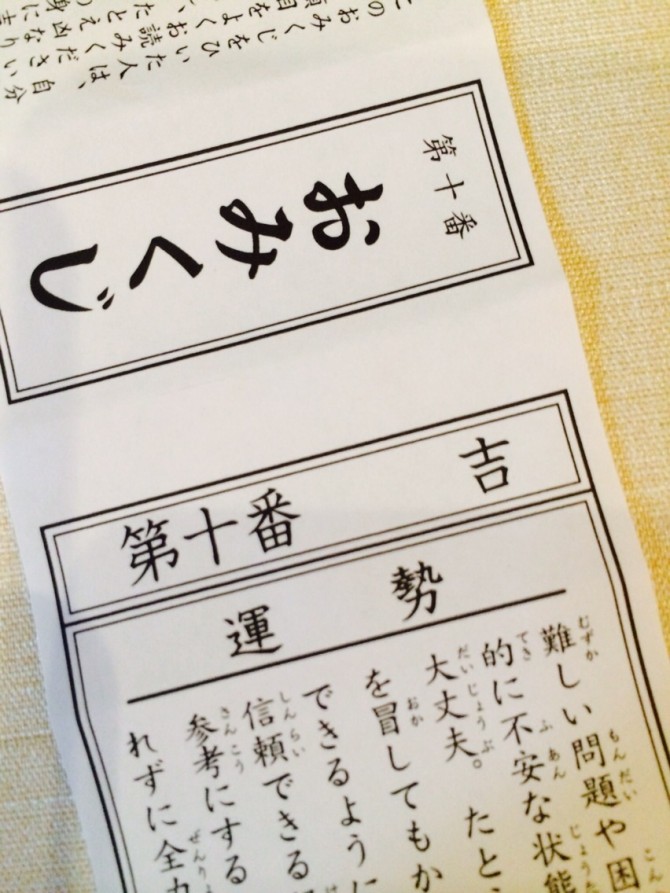 このおみくじをひいた人は、自分
目をよくお読みください
たとえ凶
第十番
おみくじ
吉
第十番
運勢
難しい問題や困
的に不安な状態
大丈夫。たと
を冒してもか
できるように
信頼できる
参考にする
れずに全力